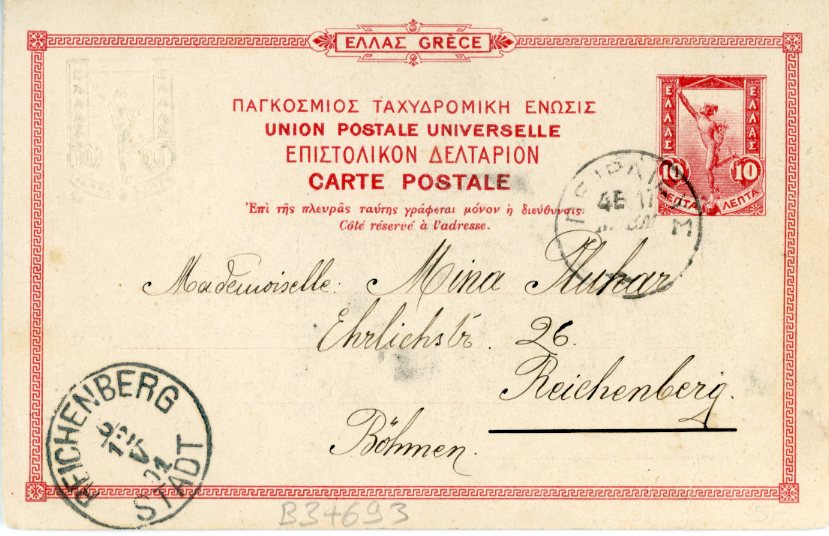 ΕΛΛΑΣ GRÈCE
ΠΑΓΚΟΣΜΙΟΣ ΤΑΧΥΔΡΟΜΙΚΗ ΕΝΩΣΙΣ
UNION POSTALE UNIVERSELLE
ΕΠΙΣΤΟΛΙΚΟΝ ΔΕΛΤΑΡΙΟΝ
CARTE POSTALE
Ἐπὶ τῆς πλευρᾶς ταύτης γράφεται μόνον ἡ διεύθυνσις.
Côté réservé à l'adresse.
ΕΛΛΑΣ ΕΛΛΑΣ
10 10
ΛΕΠΤΑ ΛΕΠΤΑ
Mademoiselle Mina
Ehrlichstr. 26.
Reichenberg.
Böhmen.
REICHENBERG
STADT
B3+693